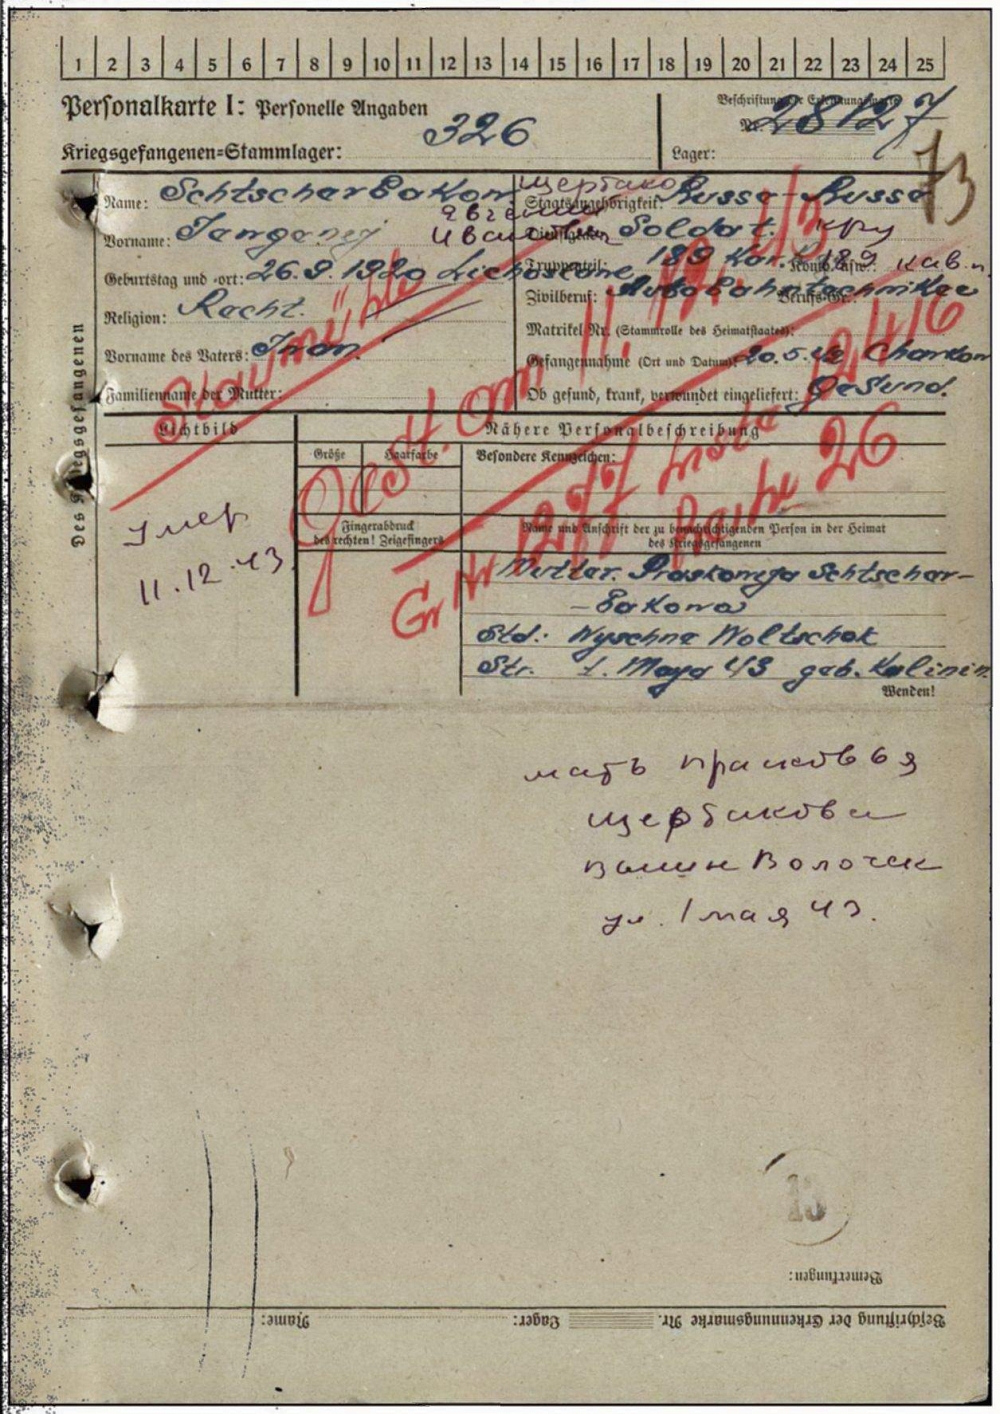 1 2 3 4 5 6 7 8 9 10 11 12 13 14 15 16 17 18 19 20 21 22 23 24 25
Personalkarte I: Personelle Angaben
Beschriftung der Erkennungsmarke
Nr. 28127
Kriegsgefangenen=Stammlager: 326
Lager:
73
Des Kriegsgefangenen
Name: Schtscharbakow
Щербако
Staatsangehörigkeit: Russe Russe
Vorname:
Евгений
Иванович
Dienstgrad: Soldat.
Geburtstag und -ort: 26.9.1920 Lichoslawe
Truppenteil: 189 Kav. Komp. usw.: 189 кав.п.
Religion: Recht.
Zivilberuf: Berufs-Gr.:
Matrikel Nr. (Stammrolle des Heimatstaates):
Vorname des Vaters: Iwan.
Gefangennahme (Ort und Datum): 20.5.42 Charkow
Familienname der Mutter:
Ob gesund, krank, verwundet eingeliefert: Gesund.
Staumühle
Gest. am 11. 12. 43
Gr Nr 1277 Liste 12416
Reihe 26
Lichtbild
Nähere Personalbeschreibung
Größe
Haarfarbe
Besondere Kennzeichen:
умер
11.12.43.
Fingerabdruck
des rechten! Zeigefingers
Name und Anschrift der zu benachrichtigenden Person in der Heimat
des Kriegsgefangenen
Mutter. Praskowja Schtschar-
-bakowa
Std.: Wyschne Woltschok
Str. 1. Maya 43 geb. Kalinin.
Wenden!
мать прасковья
щербакова
вышн Волочек
ул. 1 мая 43.
13
Bemerkungen:
Beschriftung der Erkennungsmarke Nr. Lager: Name: